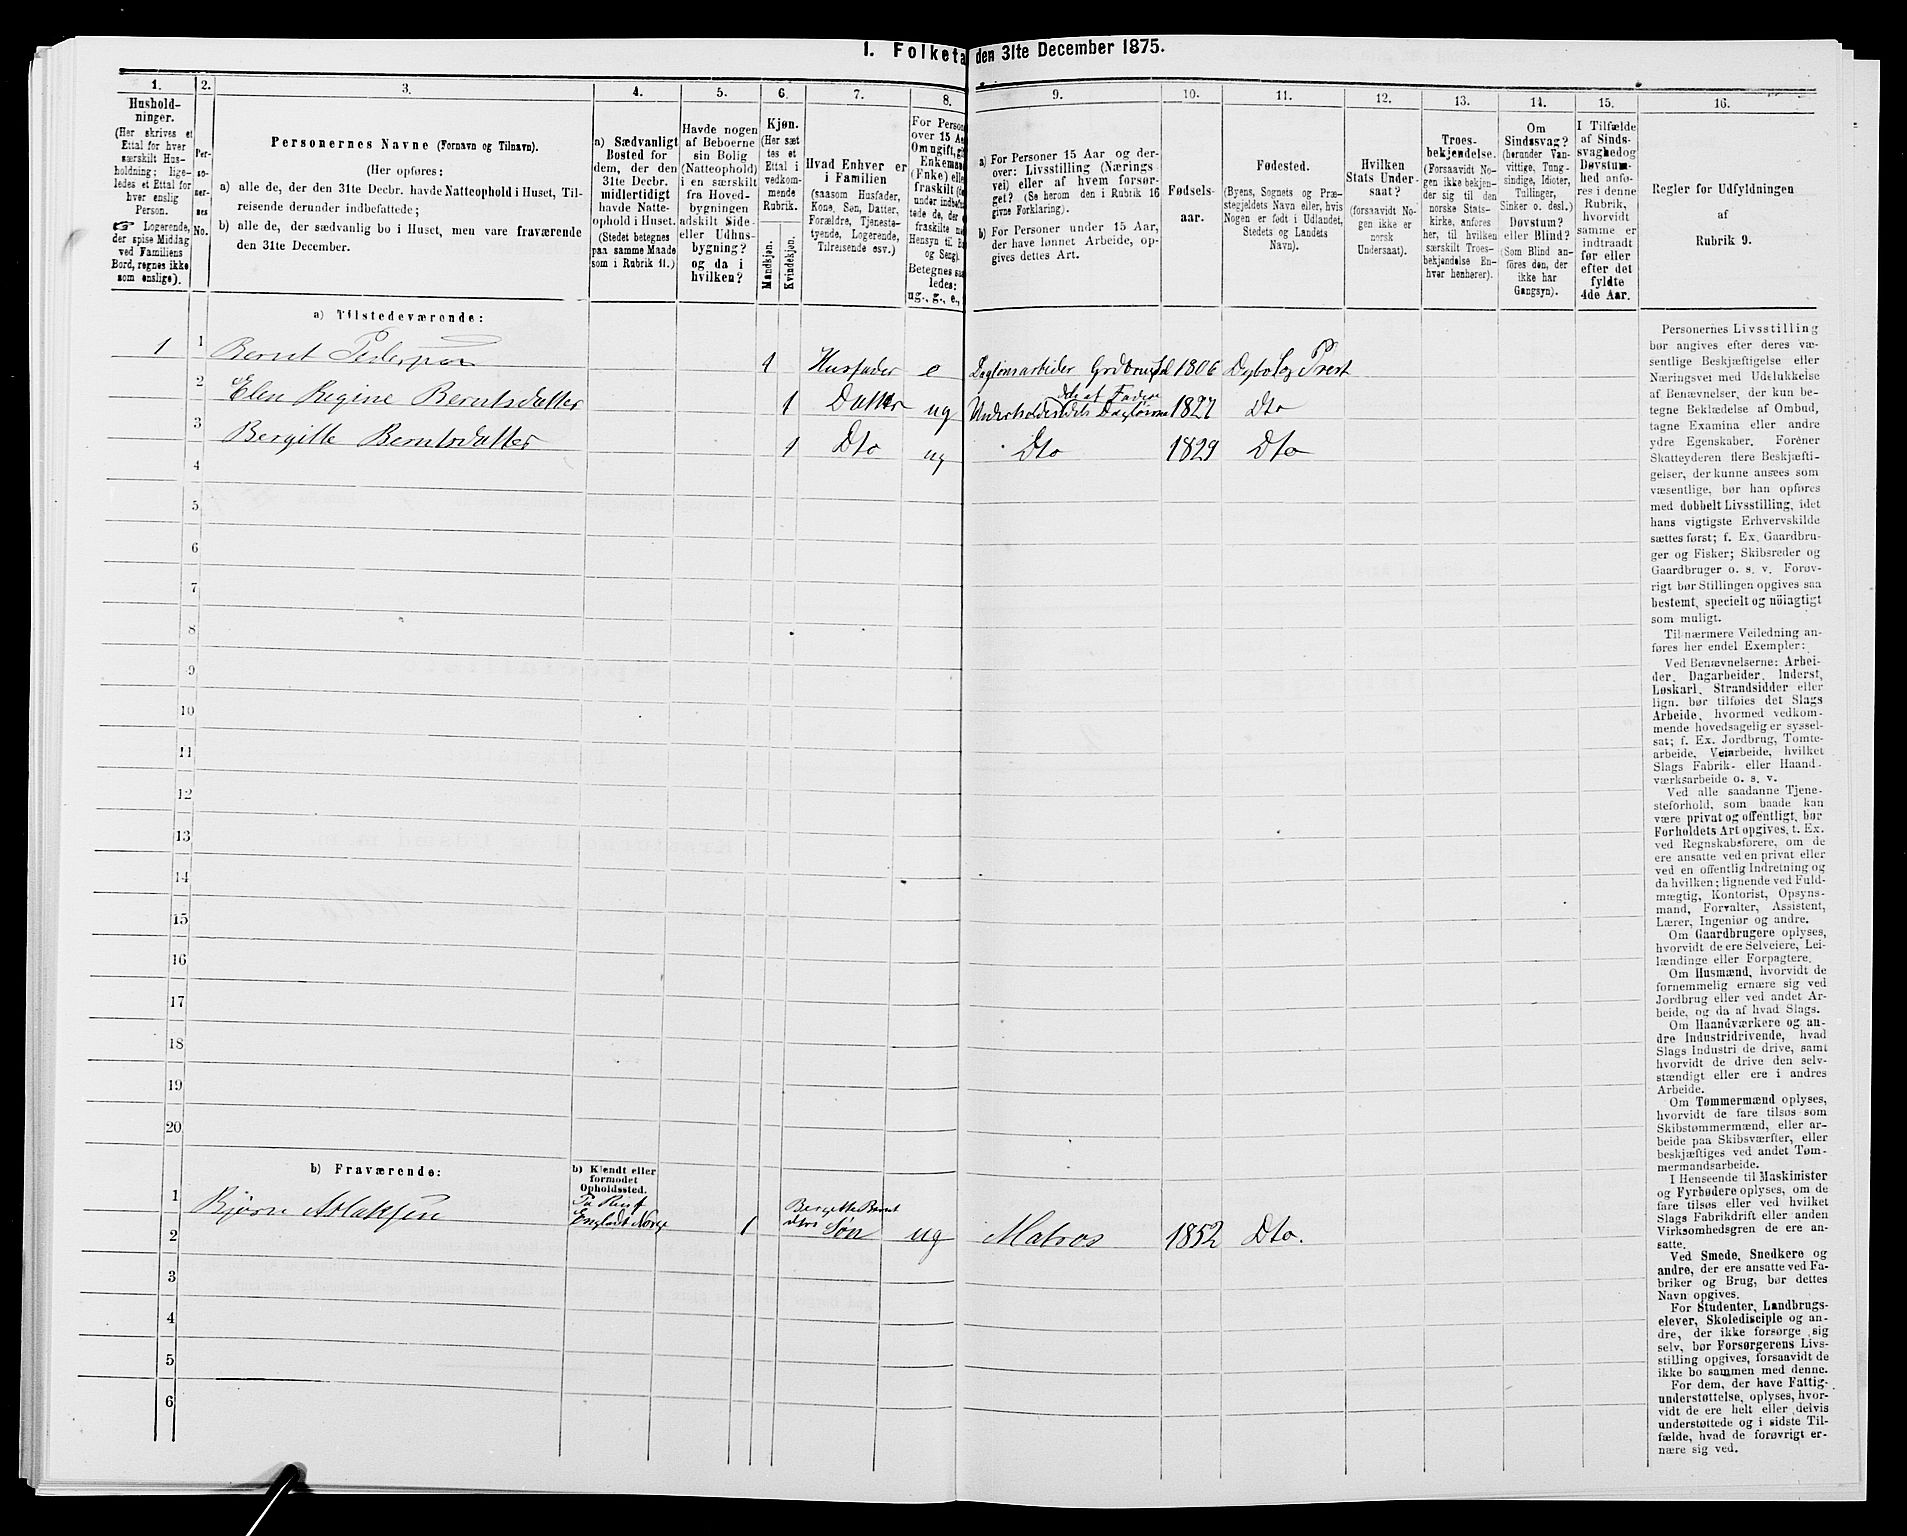 1. Folketa
den 31te December 1875.
1.
2.
3.
4.
5.
6.
7.
8.
9.
10.
11.
12.
13.
14.
15.
16.
Hushold-
ninger.
(Her skrives et
Ettal for hver
særskilt Hus-
holdning; lige-
ledes et Ettal for
hver enslig
Person.
☞ Logerende,
der spise Middag
ved Familiens
Bord, regnes ikke
som enslige).
Per-
so-
ner-
nes
No.
Personernes Navne (Fornavn og Tilnavn).
(Her opføres:
a) alle de, der den 31te Decbr. havde Natteophold i Huset, Til-
reisende derunder indbefattede;
b) alle de, der sædvanlig bo i Huset, men vare fraværende
den 31te December.
a) Sædvanligt
Bosted for
dem, der den
31te Decbr.
midlertidigt
havde Natte-
ophold i Huset.
(Stedet betegnes
paa samme Maade
som i Rubrik 11.)
Havde nogen
af Beboerne
sin Bolig
(Natteophold)
i en særskilt
fra Hoved-
bygningen
adskilt Side-
eller Udhus-
bygning?
og da i
hvilken?
Kjøn.
(Her sæt
tes et
Ettal i
vedkom-
mende
Rubrik.
Mandkjøn.
Kvindekjøn.
Hvad Enhver er
i Familien
(saasom Husfader,
Kone, Søn, Datter,
Forældre, Tjeneste-
tyende, Logerende,
Tilreisende osv.)
For Person
over 15 Aa
Om ugift, gi
Enkemand
(Enke) elle
fraskilt (de
under indbefa
tede de, der e
fraskilte me
Hensyn til Bo
og Seng).
Betegnes saa
ledes:
ug., g., e.,
a) For Personer 15 Aar og der-
over: Livsstilling (Nærings
vei) eller af hvem forsør-
get? (Se herom den i Rubrik 16
givne Forklaring).
b) For Personer under 15 Aar,
der have lønnet Arbeide, op-
gives dettes Art.
Fødsels-
aar.
Fødested.
(Byens, Sognets og Præ-
stegjeldets Navn eller, hvis
Nogen er født i Udlandet,
Stedets og Landets
Navn).
Hvilken
Stats Under-
saat?
(forsaavidt No-
gen ikke er
norsk
Undersaat).
Troes-
bekjendelse.
(Forsaavidt No-
gen ikke bekjen-
der sig til den
norske Stats-
kirke, anføres
her, til hvilken
særskilt Troes-
bekjendelse En-
hver henhører).
Om
Sindssvag?
(herunder Van-
vittige, Tung-
sindige, Idioter,
Tullinger,
Sinker o. desl.)
Døvstum?
eller Blind?
(Som Blind an-
føres den, der
ikke har
Gangsyn).
I Tilfælde
af Sinds-
svaghed og
Døvstum-
hed anfø-
res i denne
Rubrik,
hvorvidt
samme er
indtraadt
før eller
efter det
fyldte
4de Aar.
Regler for Udfyldningen
af
Rubrik 9.
a) Tilstedeværende:
1 1 Bernt Pederson 1 Husfader e Daglønsarbeider 1806
2 Elen Regine Berntsdatter 1 Datter ug 1827 Dto
3 Bergitte Berntsdatter 1 Dto ug Dto 1829 Dto
4
5
6
7
8
9
10
11
12
13
14
15
16
17
18
19
20
b) Fraværende:
b) Kjendt eller
formodet
Opholdssted.
1 Bjørn Atlaksen 1 Søn ug Matros 1852 Dto.
2
3
4
5
6
Personernes Livsstilling
bør angives efter deres væ-
sentlige Beskjæftigelse eller
Næringsvei med Udelukkelse
af Benævnelser, der kun be-
tegne Beklædelse af Ombud,
tagne Examina eller andre
ydre Egenskaber. Forener
Skatteyderen flere Beskjæfti-
gelser, der kunne ansees som
væsentlige, bør han opføres
med dobbelt Livsstilling, idet
hans vigtigste Erhvervskilde
sættes først; f. Ex. Gaardbru-
ger og Fisker; Skibsreder og
Gaardbruger o. s. v. Forøv-
rigt bør Stillingen opgives saa
bestemt, specielt og nöiagtigt
som muligt.
Til nærmere Veiledning an-
føres her endel Exempler:
Ved Benævnelserne: Arbei-
der, Dagarbeider, Inderst,
Løskarl, Strandsidder eller
lign. bør tilføies det Slags
Arbeide, hvormed vedkom-
mende hovedsagelig er syssel-
sat; f. Ex. Jordbrug, Tomte-
arbeide, Veiarbeide, hvilket
Slags Fabrik- eller Haand-
værksarbeide o. s. v.
Ved alle saadanne Tjene-
steforhold, som baade kan
være privat og offentligt, bør
Forholdets Art opgives, t. Ex.
ved Regnskabsførere, om de
ere ansatte ved en privat eller
ved en offentlig Indretning og
da hvilken; lignende ved Fuld-
mægtig, Kontorist, Opsyns-
mand, Forvalter, Assistent,
Lærer, Ingeniør og andre.
Om Gaardbrugere oplyses,
hvorvidt de ere Selveiere, Lei-
lændinge eller Forpagtere.
Om Husmænd, hvorvidt de
fornemmelig ernære sig ved
Jordbrug eller ved andet Ar-
beide, og da af hvad Slags.
Om Haandværkere og an-
dre Industridrivende, hvad
Slags Industri de drive, samt
hvorvidt de drive den selv-
stændigt eller ere i andres
Arbeide.
Om Tømmermænd oplyses,
hvorvidt de fare tilsøs som
Skibstømmermænd, eller ar-
beide paa Skibsværfter, eller
beskjæftiges ved andet Tøm-
mermandsarbeide.
I Henseende til Maskinister
og Fyrbødere oplyses, om de
fare tilsøs eller ved hvilket
Slags Fabrikdrift eller anden
Virksomhedsgren de ere an-
satte.
Ved Smede, Snedkere og
andre, der ere ansatte ved Fa-
briker og Brug, bør dettes
Navn opgives.
For Studenter, Landbrugs-
elever, Skoledisciple og an-
dre, der ikke forsørge sig
selv, bør Forsørgerens Livs-
stilling opgives, forsaavidt de
ikke bo sammen med denne.
For dem, der have Fattig-
understøttelse, oplyses, hvor-
vidt de ere helt eller delvis
understøttede og i sidste Til-
fælde, hvad de forøvrigt er-
nære sig ved.